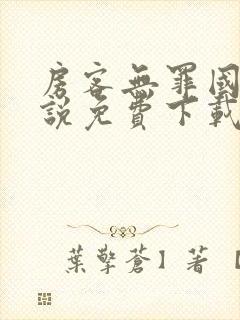 房客無罪國
說免費下載
葉擎蒼】著【